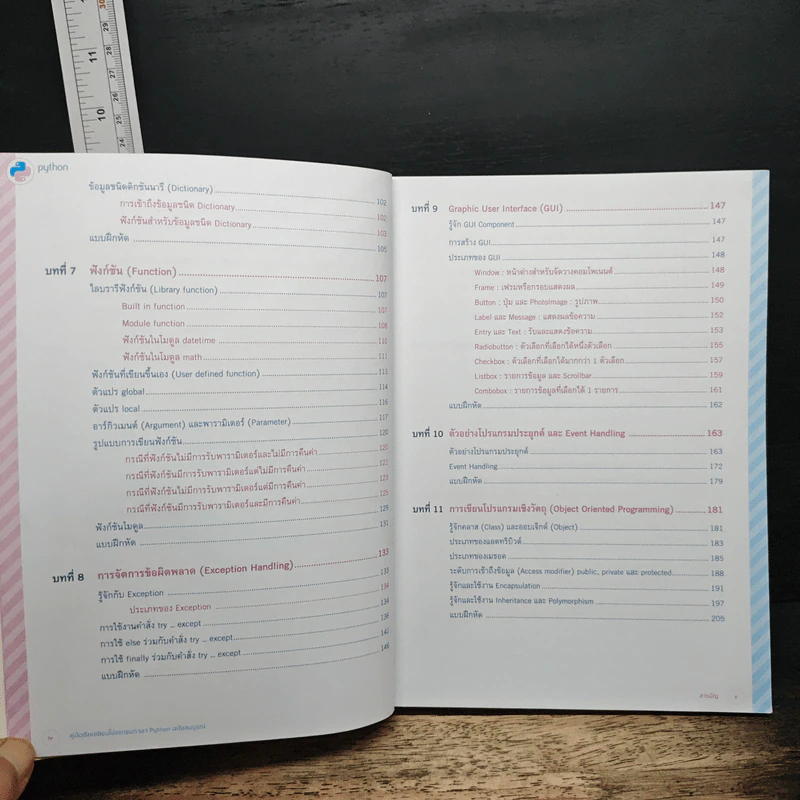 30
29
28
27
26
25
24
11
10
python
ข้อมูลชนิดดิกชันนารี (Dictionary) 102
การเข้าถึงข้อมูลชนิด Dictionary 102
ฟังก์ชันสำหรับข้อมูลชนิด Dictionary 103
แบบฝึกหัด 105
บทที่ 7 ฟังก์ชัน (Function) 107
ไลบรารีฟังก์ชัน (Library function) 107
Built in function 107
Module function 108
ฟังก์ชันในโมดูล datetime 110
ฟังก์ชันในโมดูล math 111
ฟังก์ชันที่เขียนขึ้นเอง (User defined function) 113
ตัวแปร global 114
ตัวแปร local 116
อาร์กิวเมนต์ (Argument) และพารามิเตอร์ (Parameter) 117
รูปแบบการเขียนฟังก์ชัน 120
กรณีที่ฟังก์ชันไม่มีการรับพารามิเตอร์และไม่มีการคืนค่า 120
กรณีที่ฟังก์ชันมีการรับพารามิเตอร์แต่ไม่มีการคืนค่า
กรณีที่ฟังก์ชันไม่มีการรับพารามิเตอร์แต่มีการคืนค่า
กรณีที่ฟังก์ชันมีการรับพารามิเตอร์และมีการคืนค่า
ฟังก์ชันโมดูล 129
แบบฝึกหัด 131
บทที่ 8 การจัดการข้อผิดพลาด (Exception Handling) 133
รู้จักกับ Exception 133
ประเภทของ Exception 134
การใช้งานคำสั่ง try ... except 134
การใช้ else ร่วมกับคำสั่ง try ... except 136
การใช้ finally ร่วมกับคำสั่ง try ... except 142
แบบฝึกหัด 146
คู่มือเรียนเขียนโปรแกรมภาษา Python ฉบับสมบูรณ์
บทที่ 9 Graphic User Interface (GUI) 147
รู้จัก GUI Component 147
การสร้าง GUI 147
ประเภทของ GUI 148
Window : หน้าต่างสำหรับจัดวางคอมโพเนนต์ 148
Frame : เฟรมหรือกรอบแสดงผล 149
Button : ปุ่ม และ PhotoImage : รูปภาพ 150
Label และ Message : แสดงผลข้อความ 152
Entry และ Text : รับและแสดงข้อความ 153
Radiobutton : ตัวเลือกที่เลือกได้หนึ่งตัวเลือก 155
Checkbox : ตัวเลือกที่เลือกได้มากกว่า 1 ตัวเลือก 157
Listbox : รายการข้อมูล และ Scrollbar 159
Combobox : รายการข้อมูลที่เลือกได้ 1 รายการ 161
แบบฝึกหัด 162
บทที่ 10 ตัวอย่างโปรแกรมประยุกต์ และ Event Handling 163
ตัวอย่างโปรแกรมประยุกต์ 163
Event Handling 172
แบบฝึกหัด 179
บทที่ 11 การเขียนโปรแกรมเชิงวัตถุ (Object Oriented Programming) 181
รู้จักคลาส (Class) และออบเจ็กต์ (Object) 181
ประเภทของแอตทริบิวต์ 183
ประเภทของเมธอด 185
ระดับการเข้าถึงข้อมูล (Access modifier) public, private และ protected 188
รู้จักและใช้งาน Encapsulation 191
รู้จักและใช้งาน Inheritance และ Polymorphism 197
แบบฝึกหัด 205
สารบัญ v